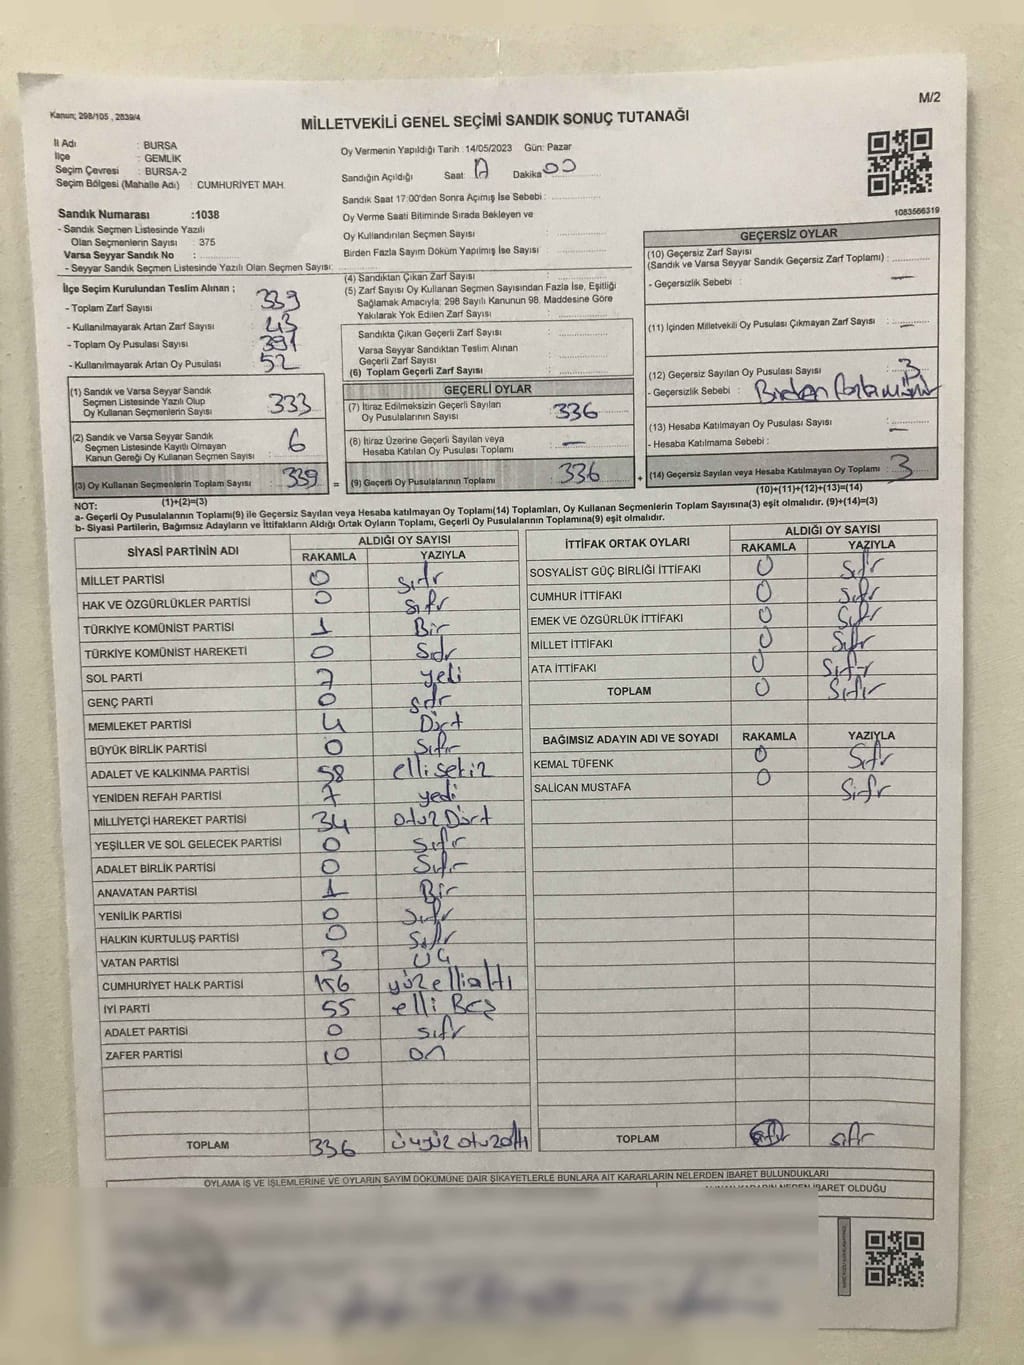 M/2
Kanun; 298/105 , 2839/4
MİLLETVEKİLİ GENEL SEÇİMİ SANDIK SONUÇ TUTANAĞI
İl Adı : BURSA
İlçe : GEMLİK
Seçim Çevresi : BURSA-2
Seçim Bölgesi (Mahalle Adı) : CUMHURİYET MAH.
Sandık Numarası :1038
- Sandık Seçmen Listesinde Yazılı
Olan Seçmenlerin Sayısı : 375
Varsa Seyyar Sandık No :
- Seyyar Sandık Seçmen Listesinde Yazılı Olan Seçmen Sayısı:
Oy Vermenin Yapıldığı Tarih : 14/05/2023 Gün: Pazar
Sandığın Açıldığı Saat: Dakika: 00
Sandık Saat 17:00'den Sonra Açımış İse Sebebi :
Oy Verme Saati Bitiminde Sırada Bekleyen ve
Oy Kullandırılan Seçmen Sayısı :
Birden Fazla Sayım Döküm Yapılmış İse Sayısı :
1083566319
İlçe Seçim Kurulundan Teslim Alınan ;
- Toplam Zarf Sayısı : 339
- Kullanılmayarak Artan Zarf Sayısı : 43
- Toplam Oy Pusulası Sayısı : 391
- Kullanılmayarak Artan Oy Pusulası : 52
(1) Sandık ve Varsa Seyyar Sandık
Seçmen Listesinde Yazılı Olup
Oy Kullanan Seçmenlerin Sayısı : 333
(2) Sandık ve Varsa Seyyar Sandık
Seçmen Listesinde Kayıtlı Olmayan
Kanun Gereği Oy Kullanan Seçmen Sayısı : 6
(3) Oy Kullanan Seçmenlerin Toplam Sayısı : 339
(1)+(2)=(3)
(4) Sandıktan Çıkan Zarf Sayısı :
(5) Zarf Sayısı Oy Kullanan Seçmen Sayısından Fazla İse, Eşitliği
Sağlamak Amacıyla; 298 Sayılı Kanunun 98. Maddesine Göre
Yakılarak Yok Edilen Zarf Sayısı :
Sandıkta Çıkan Geçerli Zarf Sayısı :
Varsa Seyyar Sandıktan Teslim Alınan
Geçerli Zarf Sayısı :
(6) Toplam Geçerli Zarf Sayısı :
=
GEÇERLİ OYLAR
(7) İtiraz Edilmeksizin Geçerli Sayılan
Oy Pusulalarının Sayısı : 336
(8) İtiraz Üzerine Geçerli Sayılan veya
Hesaba Katılan Oy Pusulası Toplamı : —
(9) Geçerli Oy Pusulalarının Toplamı : 336
+
GEÇERSİZ OYLAR
(10) Geçersiz Zarf Sayısı
(Sandık ve Varsa Seyyar Sandık Geçersiz Zarf Toplamı) :
- Geçersizlik Sebebi : —
(11) İçinden Milletvekili Oy Pusulası Çıkmayan Zarf Sayısı : —
(12) Geçersiz Sayılan Oy Pusulası Sayısı : 3
- Geçersizlik Sebebi : Birden
(13) Hesaba Katılmayan Oy Pusulası Sayısı : —
- Hesaba Katılmama Sebebi :
(14) Geçersiz Sayılan veya Hesaba Katılmayan Oy Toplamı : 3
(10)+(11)+(12)+(13)=(14)
NOT:
a- Geçerli Oy Pusulalarının Toplamı(9) ile Geçersiz Sayılan veya Hesaba katılmayan Oy Toplamı(14) Toplamları, Oy Kullanan Seçmenlerin Toplam Sayısına(3) eşit olmalıdır. (9)+(14)=(3)
b- Siyasi Partilerin, Bağımsız Adayların ve İttifakların Aldığı Ortak Oyların Toplamı, Geçerli Oy Pusulalarının Toplamına(9) eşit olmalıdır.
SİYASİ PARTİNİN ADI ALDIĞI OY SAYISI
RAKAMLA YAZIYLA
MİLLET PARTİSİ 0 sıfır
HAK VE ÖZGÜRLÜKLER PARTİSİ 0 sıfır
TÜRKİYE KOMÜNİST PARTİSİ 1 Bir
TÜRKİYE KOMÜNİST HAREKETİ 0 Sıfır
SOL PARTİ 7 yedi
GENÇ PARTİ 0 sıfır
MEMLEKET PARTİSİ 4 Dört
BÜYÜK BİRLİK PARTİSİ 0 Sıfır
ADALET VE KALKINMA PARTİSİ 58 ellisekiz
YENİDEN REFAH PARTİSİ 7 yedi
MİLLİYETÇİ HAREKET PARTİSİ 34 otuz Dört
YEŞİLLER VE SOL GELECEK PARTİSİ 0 sıfır
ADALET BİRLİK PARTİSİ 0 Sıfır
ANAVATAN PARTİSİ 1 Bir
YENİLİK PARTİSİ 0 sıfır
HALKIN KURTULUŞ PARTİSİ 0 Sıfır
VATAN PARTİSİ 3 ÜÇ
CUMHURİYET HALK PARTİSİ 156 yüz elli altı
İYİ PARTİ 55 elli Beş
ADALET PARTİSİ 0 sıfır
ZAFER PARTİSİ 10 on
TOPLAM 336 üçyüz otuz altı
İTTİFAK ORTAK OYLARI ALDIĞI OY SAYISI
RAKAMLA YAZIYLA
SOSYALİST GÜÇ BİRLİĞİ İTTİFAKI 0 Sıfır
CUMHUR İTTİFAKI 0 Sıfır
EMEK VE ÖZGÜRLÜK İTTİFAKI 0 Sıfır
MİLLET İTTİFAKI 0 Sıfır
ATA İTTİFAKI 0 Sıfır
TOPLAM 0 Sıfır
BAĞIMSIZ ADAYIN ADI VE SOYADI RAKAMLA YAZIYLA
KEMAL TÜFENK 0 Sıfır
SALİCAN MUSTAFA 0 Sıfır
TOPLAM sıfır
OYLAMA İŞ VE İŞLEMLERİNE VE OYLARIN SAYIM DÖKÜMÜNE DAİR ŞİKAYETLERLE BUNLARA AİT KARARLARIN NELERDEN İBARET BULUNDUKLARI
İBARET OLDUĞU